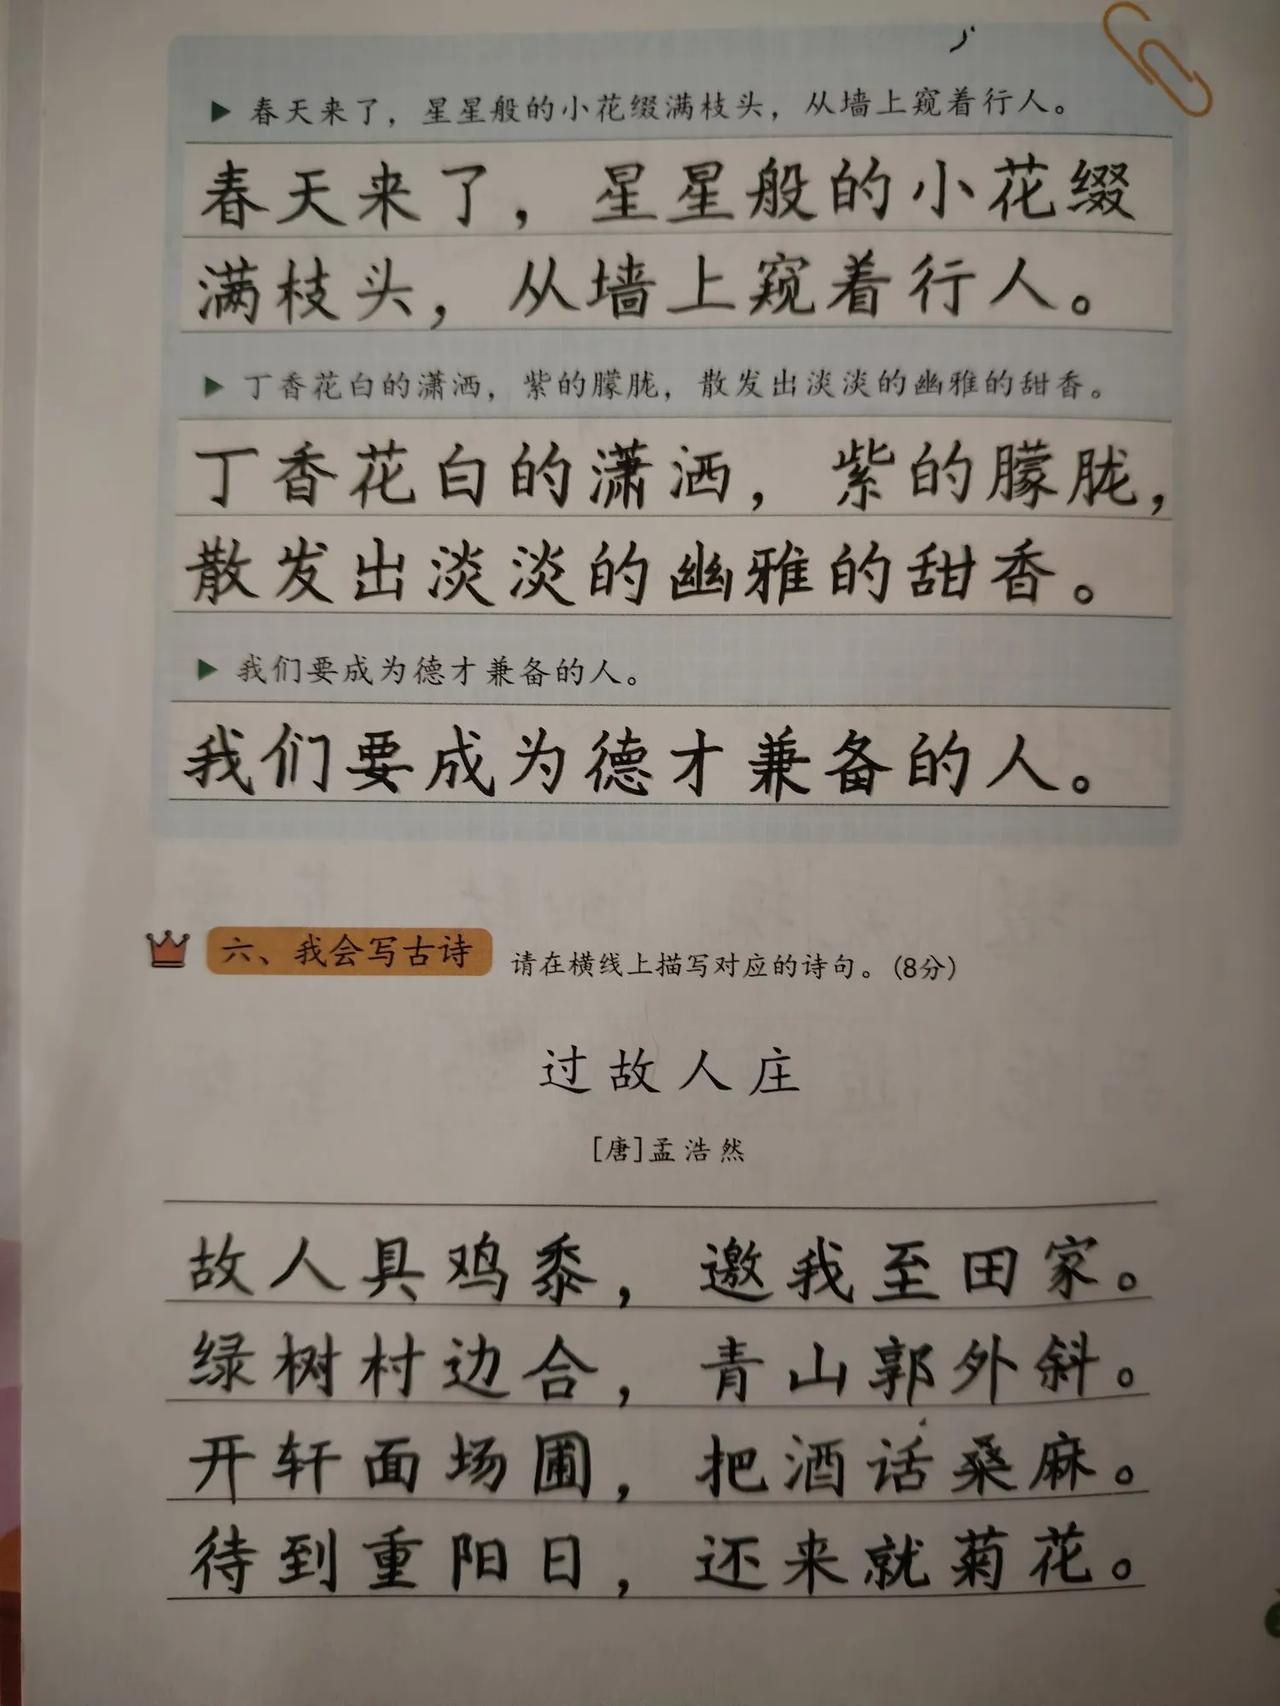 ▶ 春天来了，星星般的小花缀满枝头，从墙上窥着行人。
春天来了，星星般的小花缀
满枝头，从墙上窥着行人。
▶ 丁香花白的潇洒，紫的朦胧，散发出淡淡的幽雅的甜香。
丁香花白的潇洒，紫的朦胧，
散发出淡淡的幽雅的甜香。
▶ 我们要成为德才兼备的人。
我们要成为德才兼备的人。
六、我会写古诗 请在横线上描写对应的诗句。（8分）
过故人庄
［唐］孟浩然
故人具鸡黍，邀我至田家。
绿树村边合，青山郭外斜。
开轩面场圃，把酒话桑麻。
待到重阳日，还来就菊花。